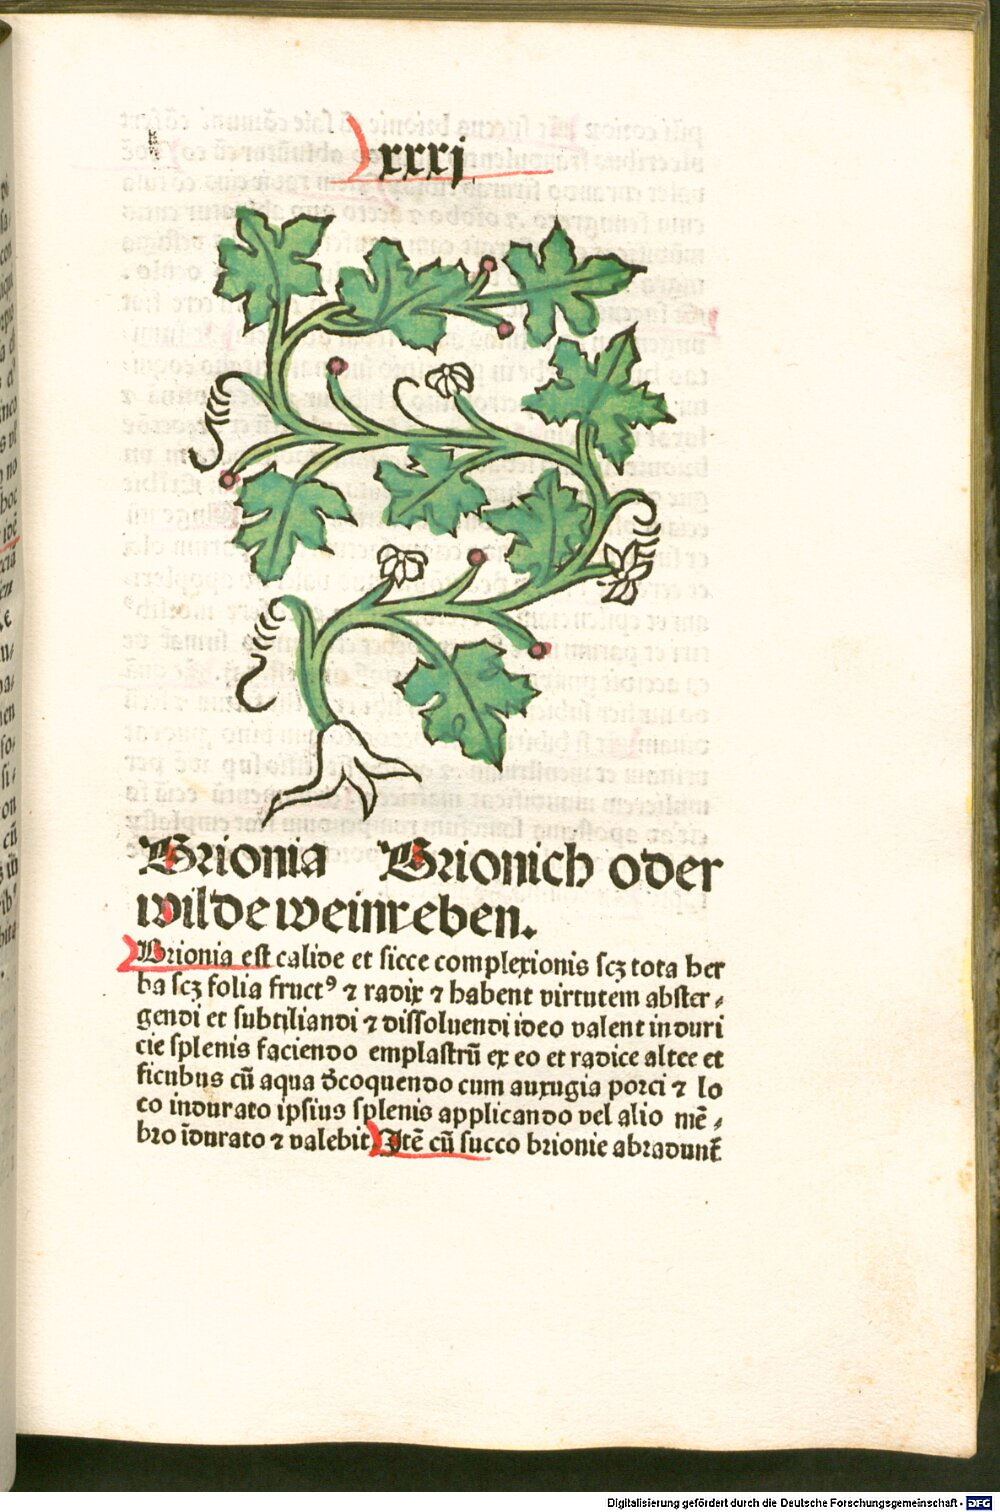 xxxj
Brionia Brionich oder
wilde weinreben.
Brionia est calide et sicce complexionis scꝫ tota her
ba scꝫ folia fructꝰ ⁊ radix ⁊ habent virtutem abster⸗
gendi et subtiliandi ⁊ dissoluendi ideo valent induri
cie splenis faciendo emplastrū ex eo et radice altee et
ficubus cū aqua dcoquendo cum auxugia porci ⁊ lo
co indurato ipsius splenis applicando vel alio mē⸗
bro īdurato ⁊ valebit Itē cū succo brionie abradunt̄
Digitalisierung gefördert durch die Deutsche Forschungsgemeinschaft - DFG